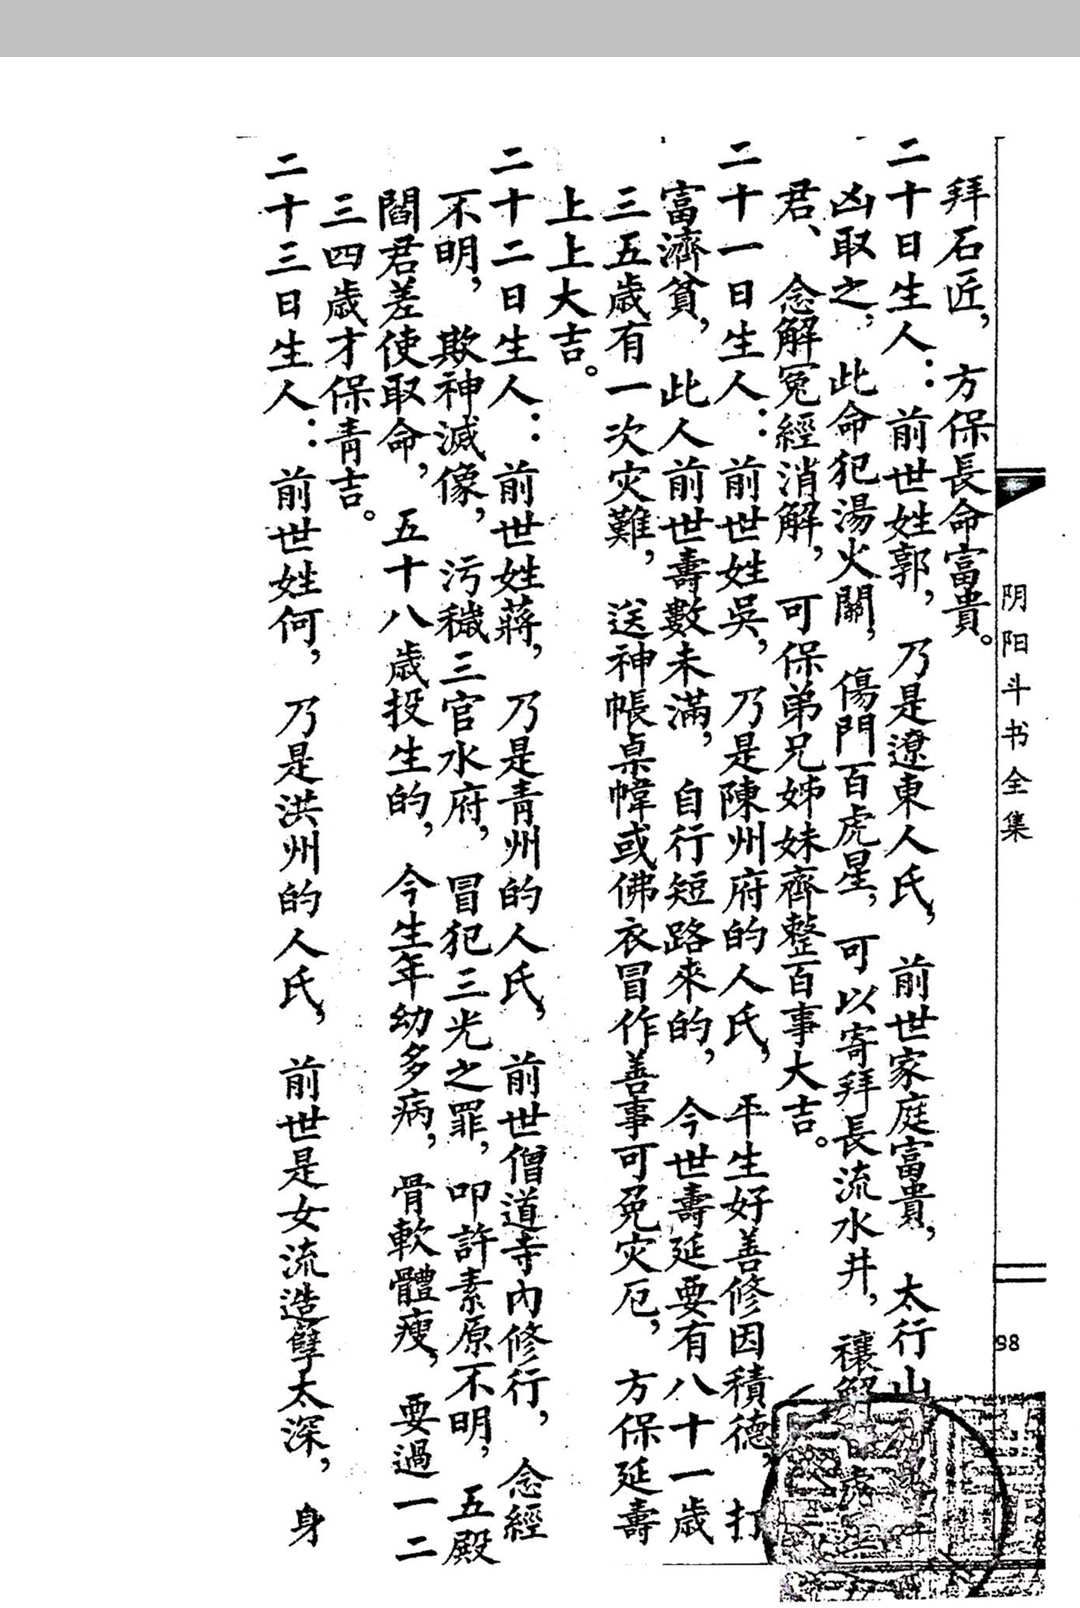 阴阳斗书全集
98
拜石匠，方保長命富貴。
二十日生人：前世姓郭，乃是遼東人氏，前世家庭富貴，太行山
凶取之，此命犯湯火關，傷門百虎星，可以寄拜長流水井，禳解
君、念解冤經消解，可保弟兄姊妹齊整百事大吉。
二十一日生人：前世姓吳，乃是陳州府的人氏，平生好善修因積德，打
富濟貧，此人前世壽數未滿，自行短路來的，今世壽延要有八十一歲
三五歲有一次灾難，送神帳桌幃或佛衣冒作善事可免灾厄，方保延壽
上上大吉。
二十二日生人：前世姓蔣，乃是青州的人氏，前世僧道寺內修行，念經
不明，欺神滅像，污穢三官水府，冒犯三光之罪，叩許素原不明，五殿
閻君差使取命，五十八歲投生的，今生年幼多病，骨軟體瘦，要過一二
三四歲才保青吉。
二十三日生人：前世姓何，乃是洪州的人氏，前世是女流造孽太深，身